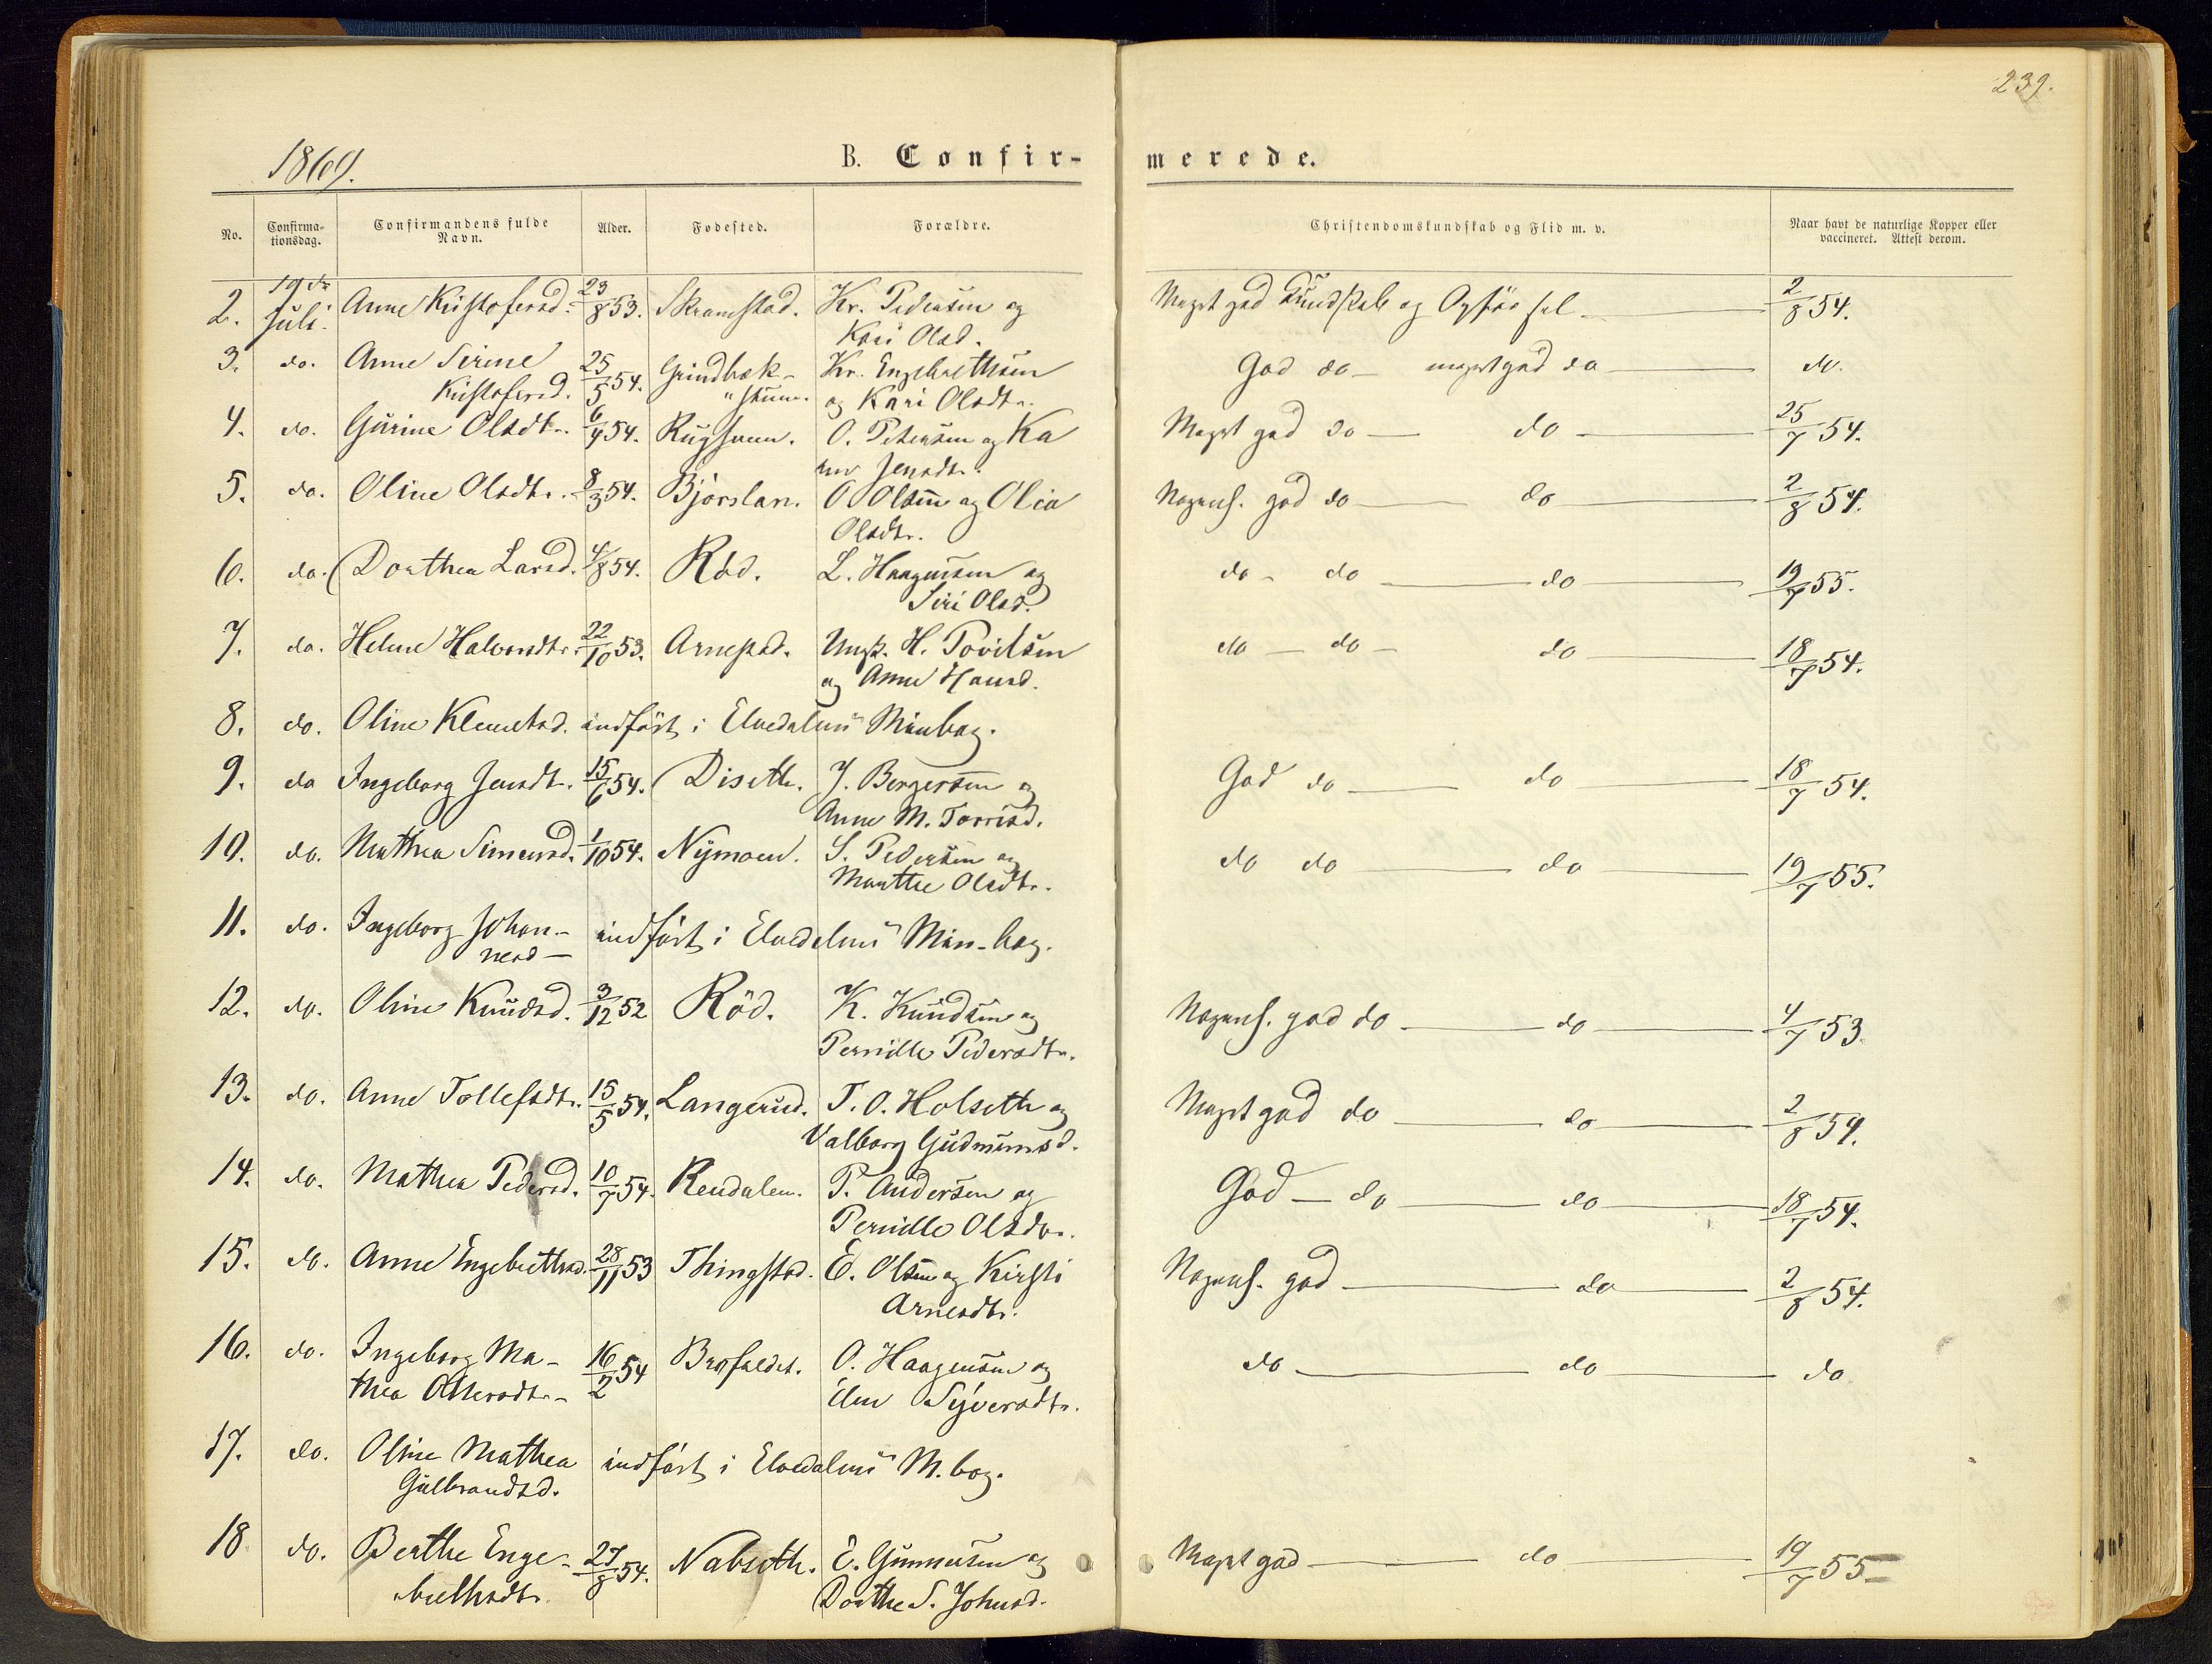 239.
1869.
B. Confir-
merede.
No.
Confirma-
tionsdag.
Confirmandens fulde
Navn.
Alder.
Fødested.
Forældre.
Christendomskundskab og Flid m. v.
Naar havt de naturlige Kopper eller
vaccineret. Attest derom.
2. Juli. Anne Kristofersd. 23/8 53. Skramstad. Kr. Pedersen og Meget god Kundskab og Opførsel 2/8 54.
Kari Olsd.
3. do. Anne Sirine 25/5 54. Grindbæk- Kr. Engebrethsen God do meget god do do.
Kristofersd. og Kari Olsdtr.
4. do. Gurine Olsdtr. 6/4 54. O. Petersen og Ka Meget god do do 25/7 54.
Jensdtr.
5. do. Oline Olsdtr. 8/3 54. Bjørslan. O Olsen og Olia Nogenl. god do do 2/8 54.
Olsdtr.
6. do. Dorthea Larsd. 4/8 54. Röd. L. Haagensen og do do do 19/7 55.
Siri Olsd.
7. do. Helene Halvorsdtr. 22/10 53. Arnestad. Ungk. H. Povelsen do do do 18/7 54.
og Anne Hansd.
8. do. Oline Klemetsd. indført i Elvedalens Minbog.
9. do Ingeborg Jensdt. 15/6 54. Diseth. J. Bergersen og God do do 18/7 54.
Anne M. Torrisd.
10. do. Mathea Simensd. 1/10 54. Nymoen. S. Pedersen og do do do 19/7 55.
Marthe Olsdtr.
11. do. Ingeborg Johan- indført i Elvedalens Min-bog.
nesd
12. do. Oline Knudsd. 3/12 52 Röd. K. Knudsen og Nogenl. god do do 4/7 53
Pernille Pedersdtr.
13. do. Anne Tollefsdtr. 15/5 54. Langerud. T. O. Holseth og Meget god do do 2/8 54.
Valborg Gudmunsd.
14. do. Mathea Pedersd. 10/7 54. Rendalen. P. Andersen og God do do 18/7 54.
Pernille Olsdtr.
15. do. Anne Engebrethsd. 28/11 53 Thingstad. E. Olsen og Kirsti Nogenl. god do 2/8 54.
Arnesdtr.
16. do. Ingeborg Ma- 16/2 54 O. Haagensen og do do do
thea Ollersdtr. Elen Syversdtr.
17. do. Oline Mathea indført i Elvedalens M. bog.
Gulbrandsd.
18 do. Berthe Enge- 27/8 54. Nabseth. E. Gunnersen og Meget god do 19/7 55
brethsdtr. Dorthe S. Johnsd.